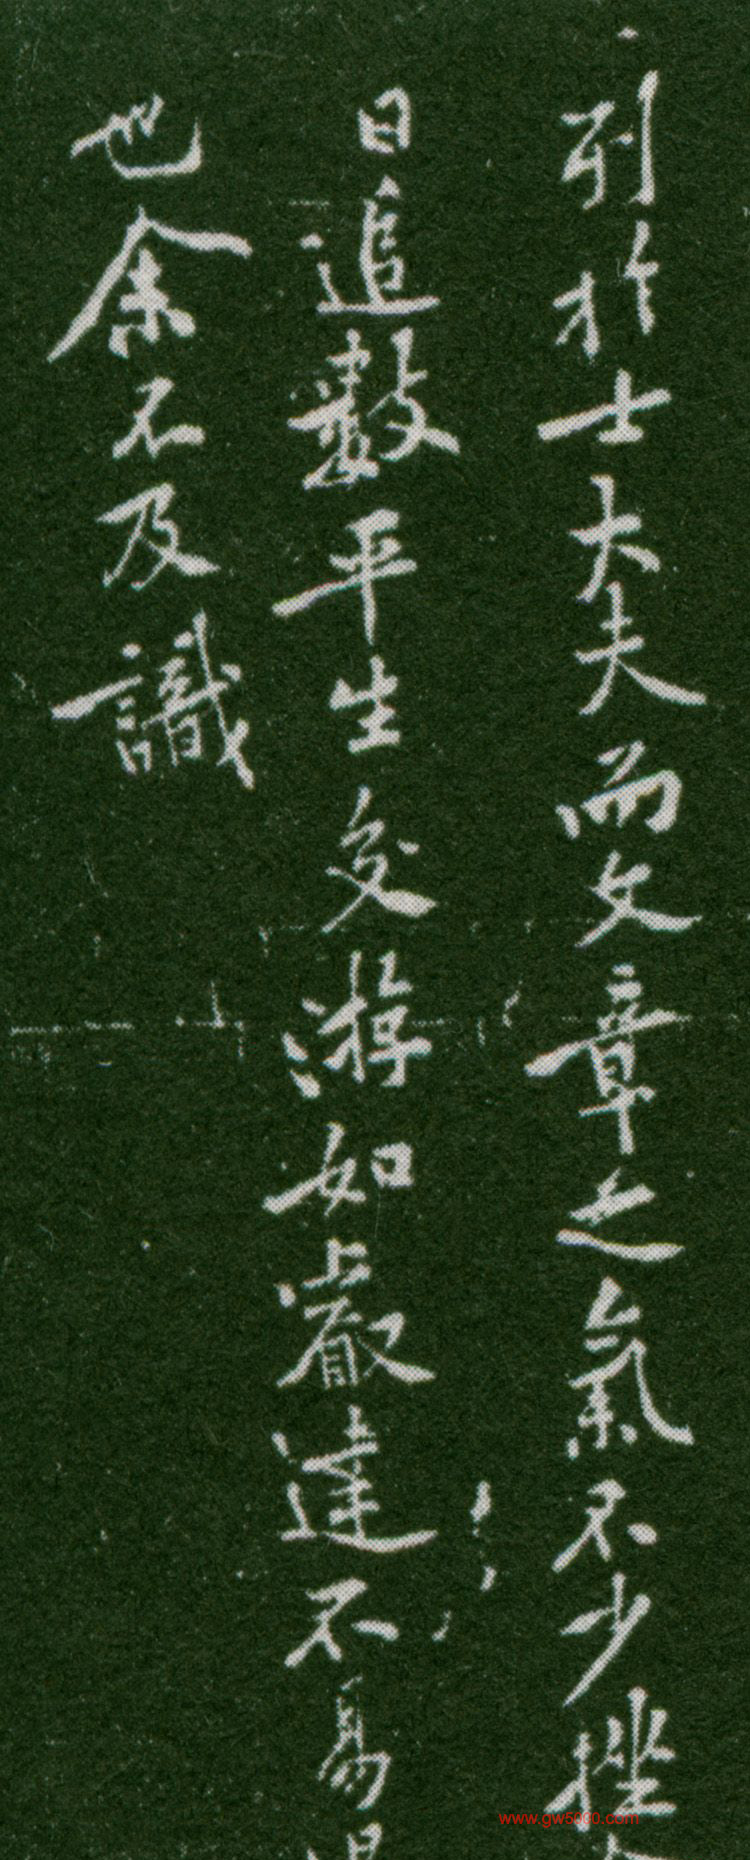 列於士大夫而文章之氣不少挫
日追數平生交游如叡達不易
也余不及識
www.gw5000.com